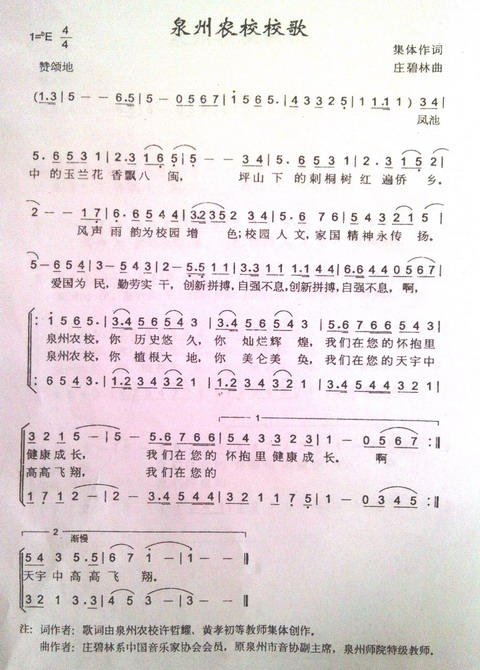 泉州农校校歌
1=ᵇE 4/4
集体作词
赞颂地
庄碧林曲
(1.3|5 - - 6.5|5 - 0567|1 565.|43325|11.11) 34|
凤池
5. 6 5 3 1|2.3 1 6 5|5 - - 34|5. 6 5 3 1|2.3 1 5 2|
中 的玉兰花 香飘八 闽， 坪山下 的刺桐树 红 遍侨 乡。
2 - - 1 7|6. 6 5 4 4|32235 2 34|5. 6 76|5 43 321 5|
风声 雨 韵为校园 增 色；校园 人 文，家国 精神永传 扬。
5 - 6 5 4|3 - 5 4 3|2 - 5.5 11|3.3 11 1.1 44|6.6 44 0567|
爱国为 民，勤劳实 干，创新拼搏，自强不息，创新拼搏，自强不息，啊，
1 5 6 5.|3.4 56 54 3|3.4 53 43 1|5.6 7 66 5 4 3|
泉州农校，你 历史悠 久，你 灿烂辉 煌，我们在您的怀抱里
泉州农校，你 植根大 地，你 美仑美 奂，我们在您的天宇中
6 5 4 3.|1.2 34 32 1|1.2 34 32 1|3.4 5 44 3 2 1|
1
3 2 1 5 -|5 - 5.6 7 66|5 4 3 3 2 3 1|1 - 0 5 6 7:‖
健康成长， 我们在您的 怀抱里健康成长。 啊
高高飞翔， 我们在您的
1 7 1 2 -|2 - 3.4 5 44|3 2 1 1 7 5|1 - 0 3 4 5:‖
2 渐慢
5 4 3 5.5|6 7 1 -|1 -‖
天宇中高高飞 翔。
3 2 1 3.3|
注：词作者：歌词由泉州农校许哲耀、黄孝初等教师集体创作。
曲作者：庄碧林系中国音乐家协会会员，原泉州市音协副主席，泉州师院特级教师。